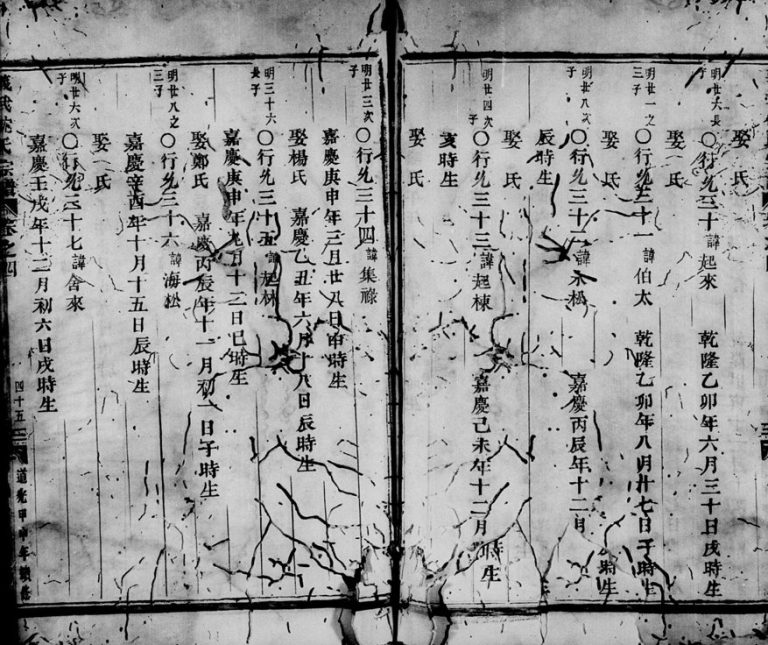 娶 氏
明廿六長子 〇行允三十 諱起來 乾隆乙卯年六月三十日戌時生
娶 氏
明廿一之三子 〇行允三十一 諱伯太 乾隆乙卯年八月廿七日子時生
娶 氏
明廿八次子 〇行允三十二 諱永松 嘉慶丙辰年十二月 時生
辰時生
娶 氏
明廿四次子 〇行允三十三 諱起棟 嘉慶己未年十二月 時生
亥時生
娶 氏
明廿三次子 〇行允三十四 諱集祿
嘉慶庚申年三月廿八日申時生
娶楊氏 嘉慶乙丑年六月十八日辰時生
明三十六長子 〇行允三十五 諱起林
嘉慶庚申年九月十二日巳時生
娶鄭氏 嘉慶丙辰年十一月初一日子時生
明廿八之三子 〇行允三十六 諱海松
嘉慶辛酉年十月十五日辰時生
娶 氏
明廿六次子 〇行允三十七 諱舍來
嘉慶壬戌年十二月初六日戌時生
氏宗譜 卷之四 四十五 道光甲申年